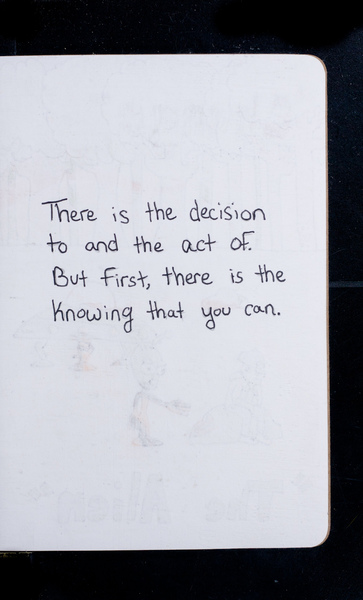 There is the decision
to and the act of.
But first, there is the
knowing that you can.